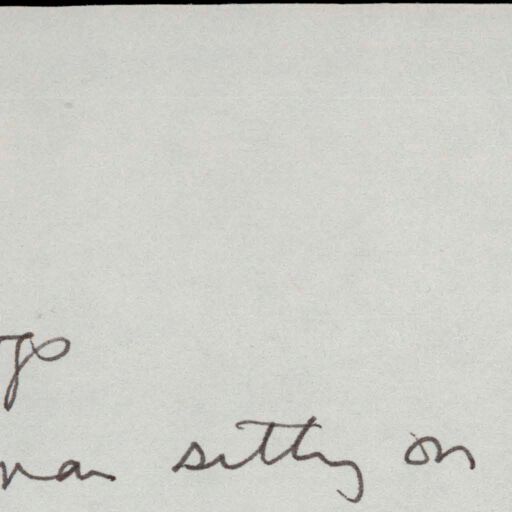 man sitting on